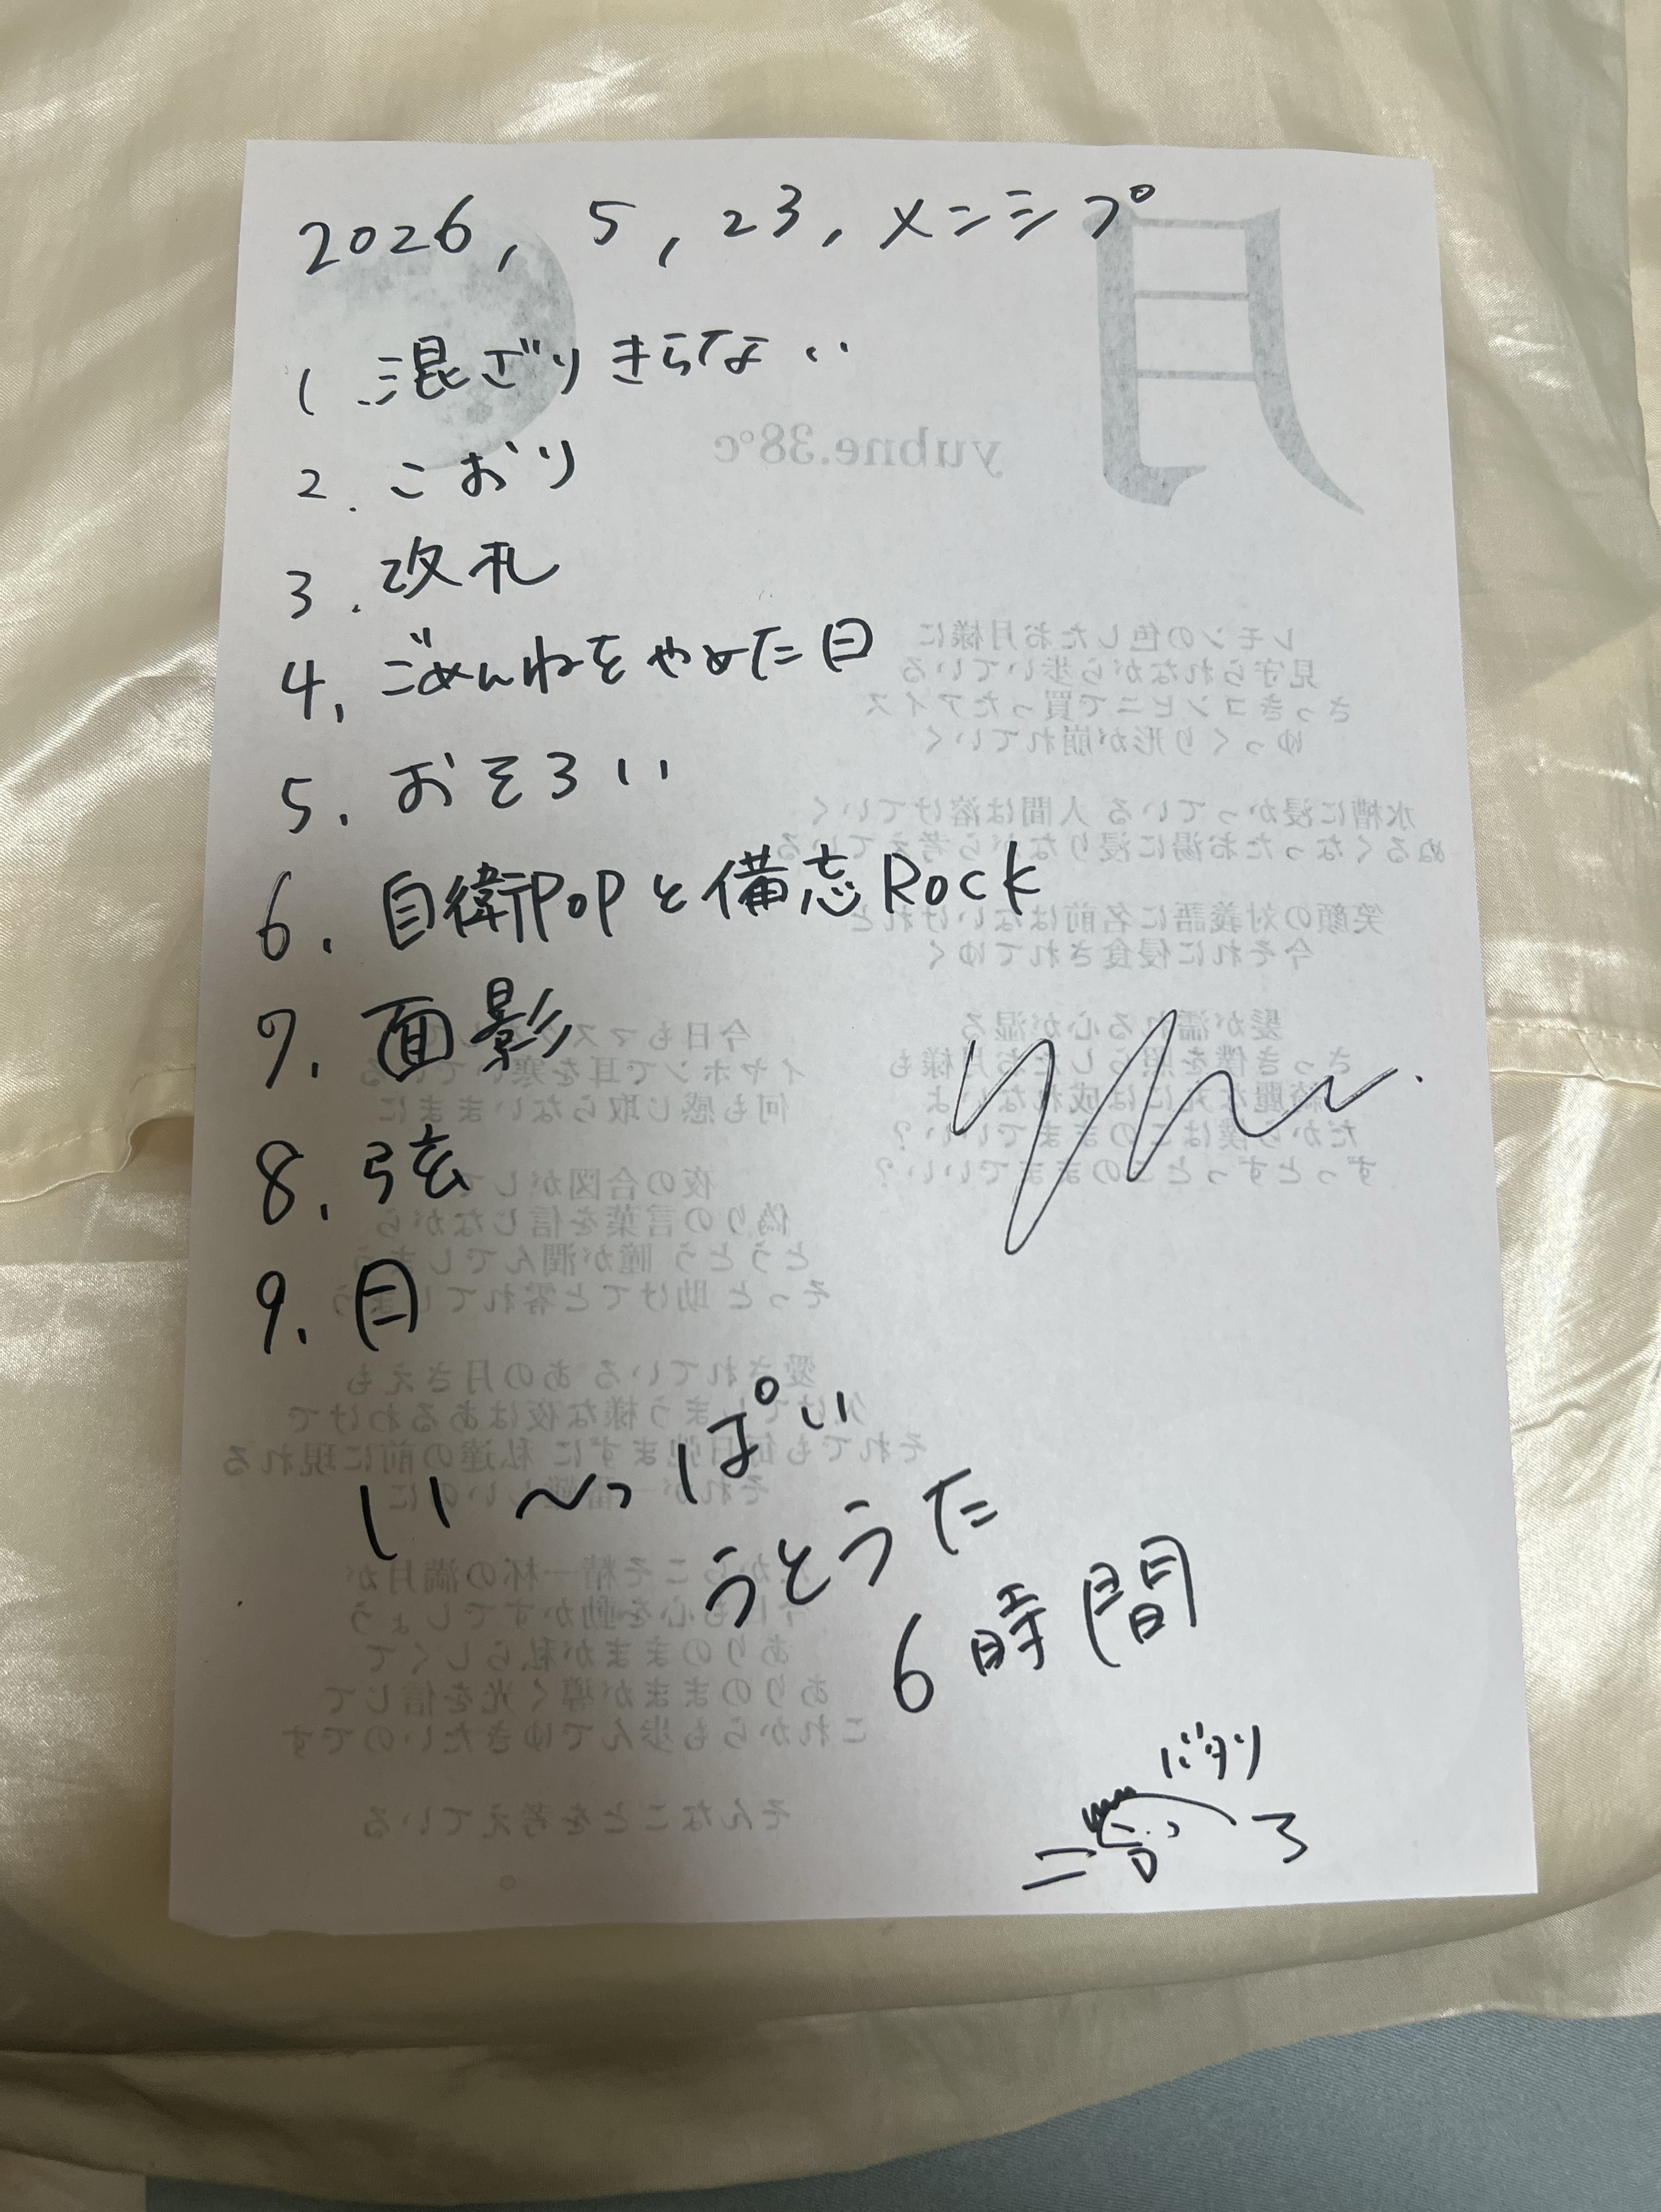 2026, 5, 23, メンシプ
1. 混ざりきらない
2. こおり
3. 改札
4. ごめんねをやめた日
5. おそろい
6. 自衛POPと備忘Rock
7. 面影
8. 弦
9. 月
い〜っぱい
うとうた
6時間
バタリ
月
yubne.38°c
レモンの色したお月様に
見守られながら歩いている
さっきコンビニで買ったアイス
ゆっくり形が崩れていく
水槽に浸かっている 人間は溶けていく
ぬるくなったお湯に浸りながら考えている
笑顔の対義語に名前はないけれど
今それに侵食されてゆく
髪が濡れる心が湿る
さっき僕を照らしたお月様も
綺麗な丸には成れないよ
だから僕はこのままでいい？
ずっとずっとこのままでいい？
今日もマスク
イヤホンで耳を塞いでいる
何も感じ取らないままに
夜の合図がして
偽りの言葉を信じながら
とうとう 瞳が潤んでしまう
そっと 助けてと零れてしまう
愛されている あの月さえも
欠けてしまう様な夜はあるわけで
それでも毎日弛まずに 私達の前に現れる
それが一番難しいのに
だからこそ精一杯の満月が
今にも心を動かすでしょう
ありのままが私らしくて
ありのままが導く光を信じて
これからも歩んでゆきたいのです
そんなことを考えている
。